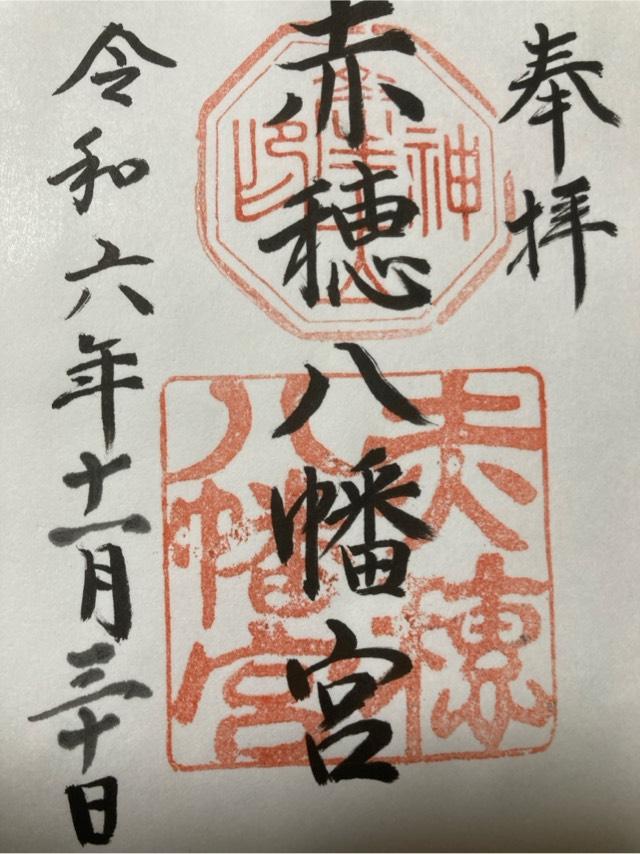 奉拝
赤穂八幡宮
令和六年十一月三十日
赤穂
八幡宮